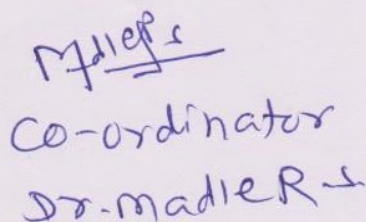 Co-ordinator
Dr. Madle R. S.